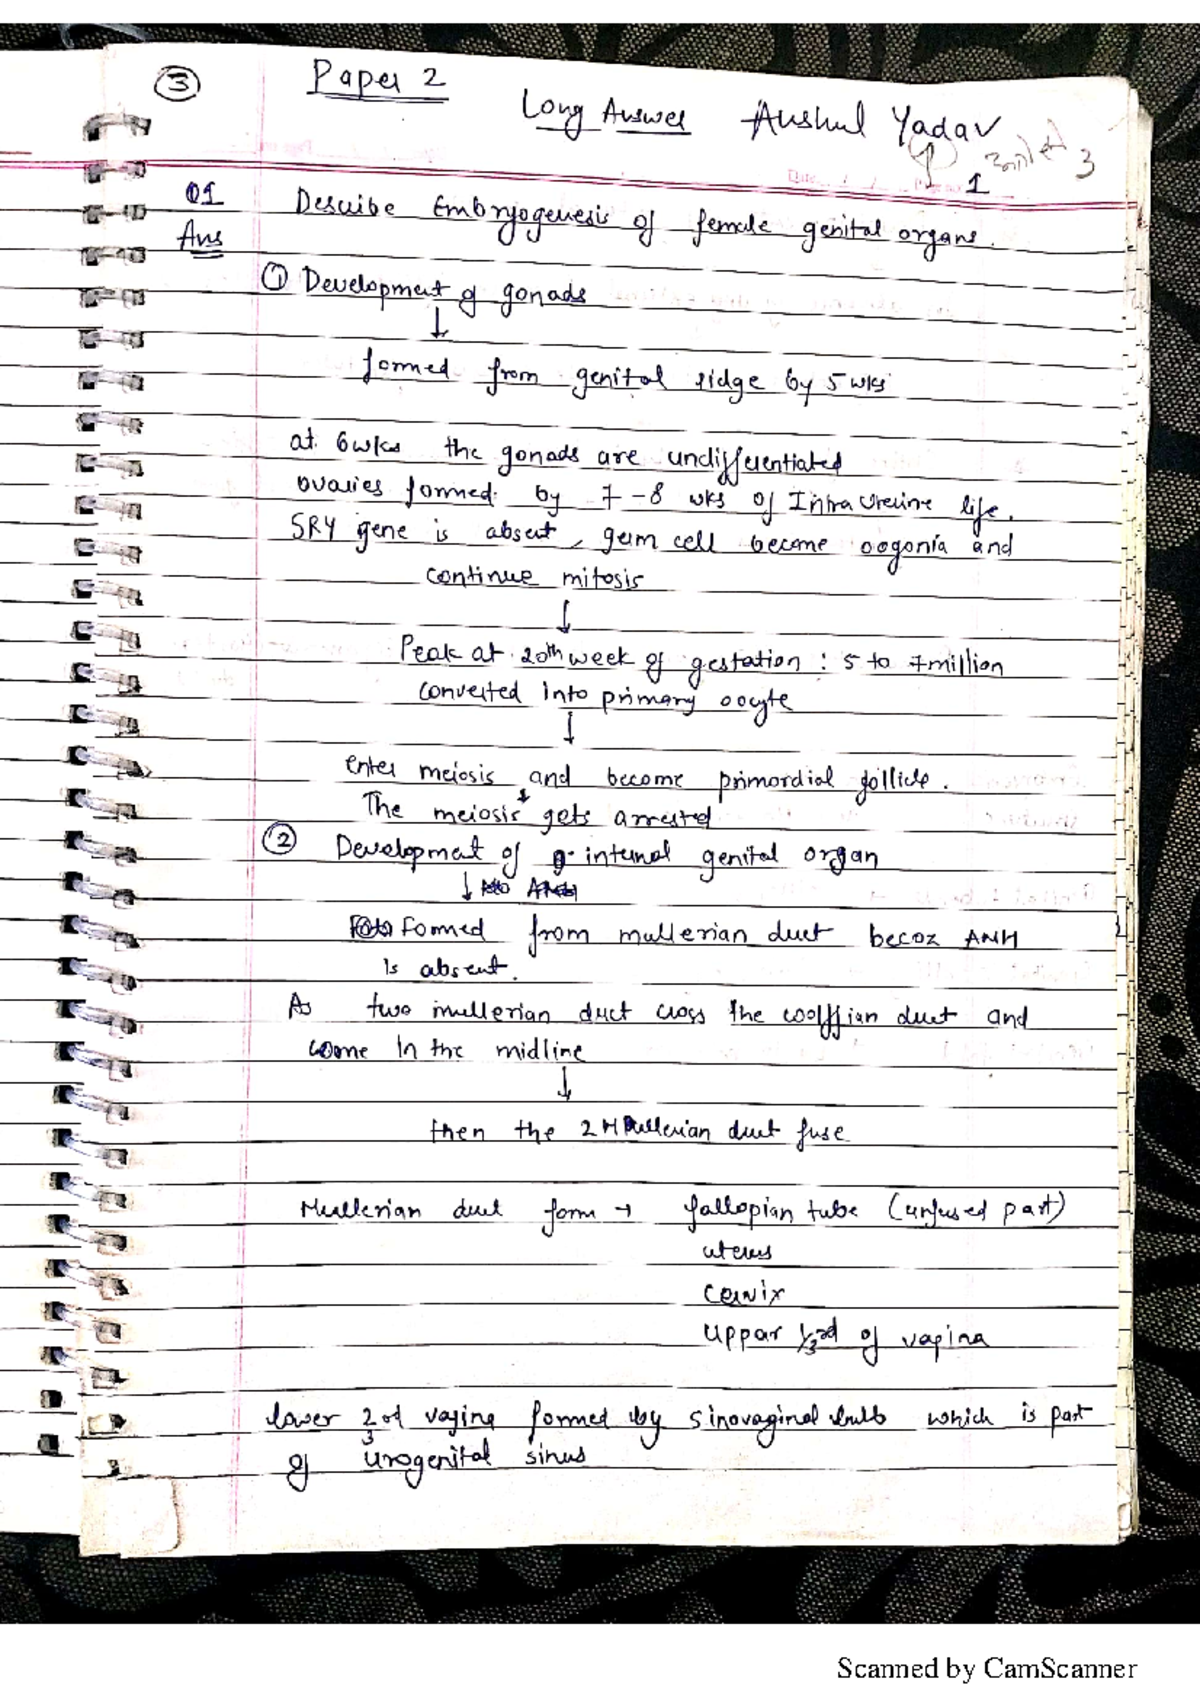 3
Paper 2
Long Answer Anshul Yadav
3
1
Q1 Describe Embryogenesis of female genital organs.
Ans
① Development of gonads
↓
formed from genital ridge by 5 wks
at 6wks the gonads are undifferentiated
ovaries formed by 7-8 wks of Intra Uterine life.
SRY gene is absent, germ cell become oogonia and
continue mitosis
↓
Peak at 20th week of gestation : 5 to 7 million
converted into primary oocyte
↓
enter meiosis and become primordial follicle.
The meiosis gets arrested
② Development of internal genital organ
↓
Formed from mullerian duct becoz AMH
is absent.
As two mullerian duct cross the woolffian duct and
come in the midline
↓
then the 2 Mullerian duct fuse
Mullerian duct form → fallopian tube (unfused part)
uterus
Cervix
Uppar 1/3rd of vagina
lower 2/3 of vagina formed by sinovaginal bulb which is part
of urogenital sinus
Scanned by CamScanner